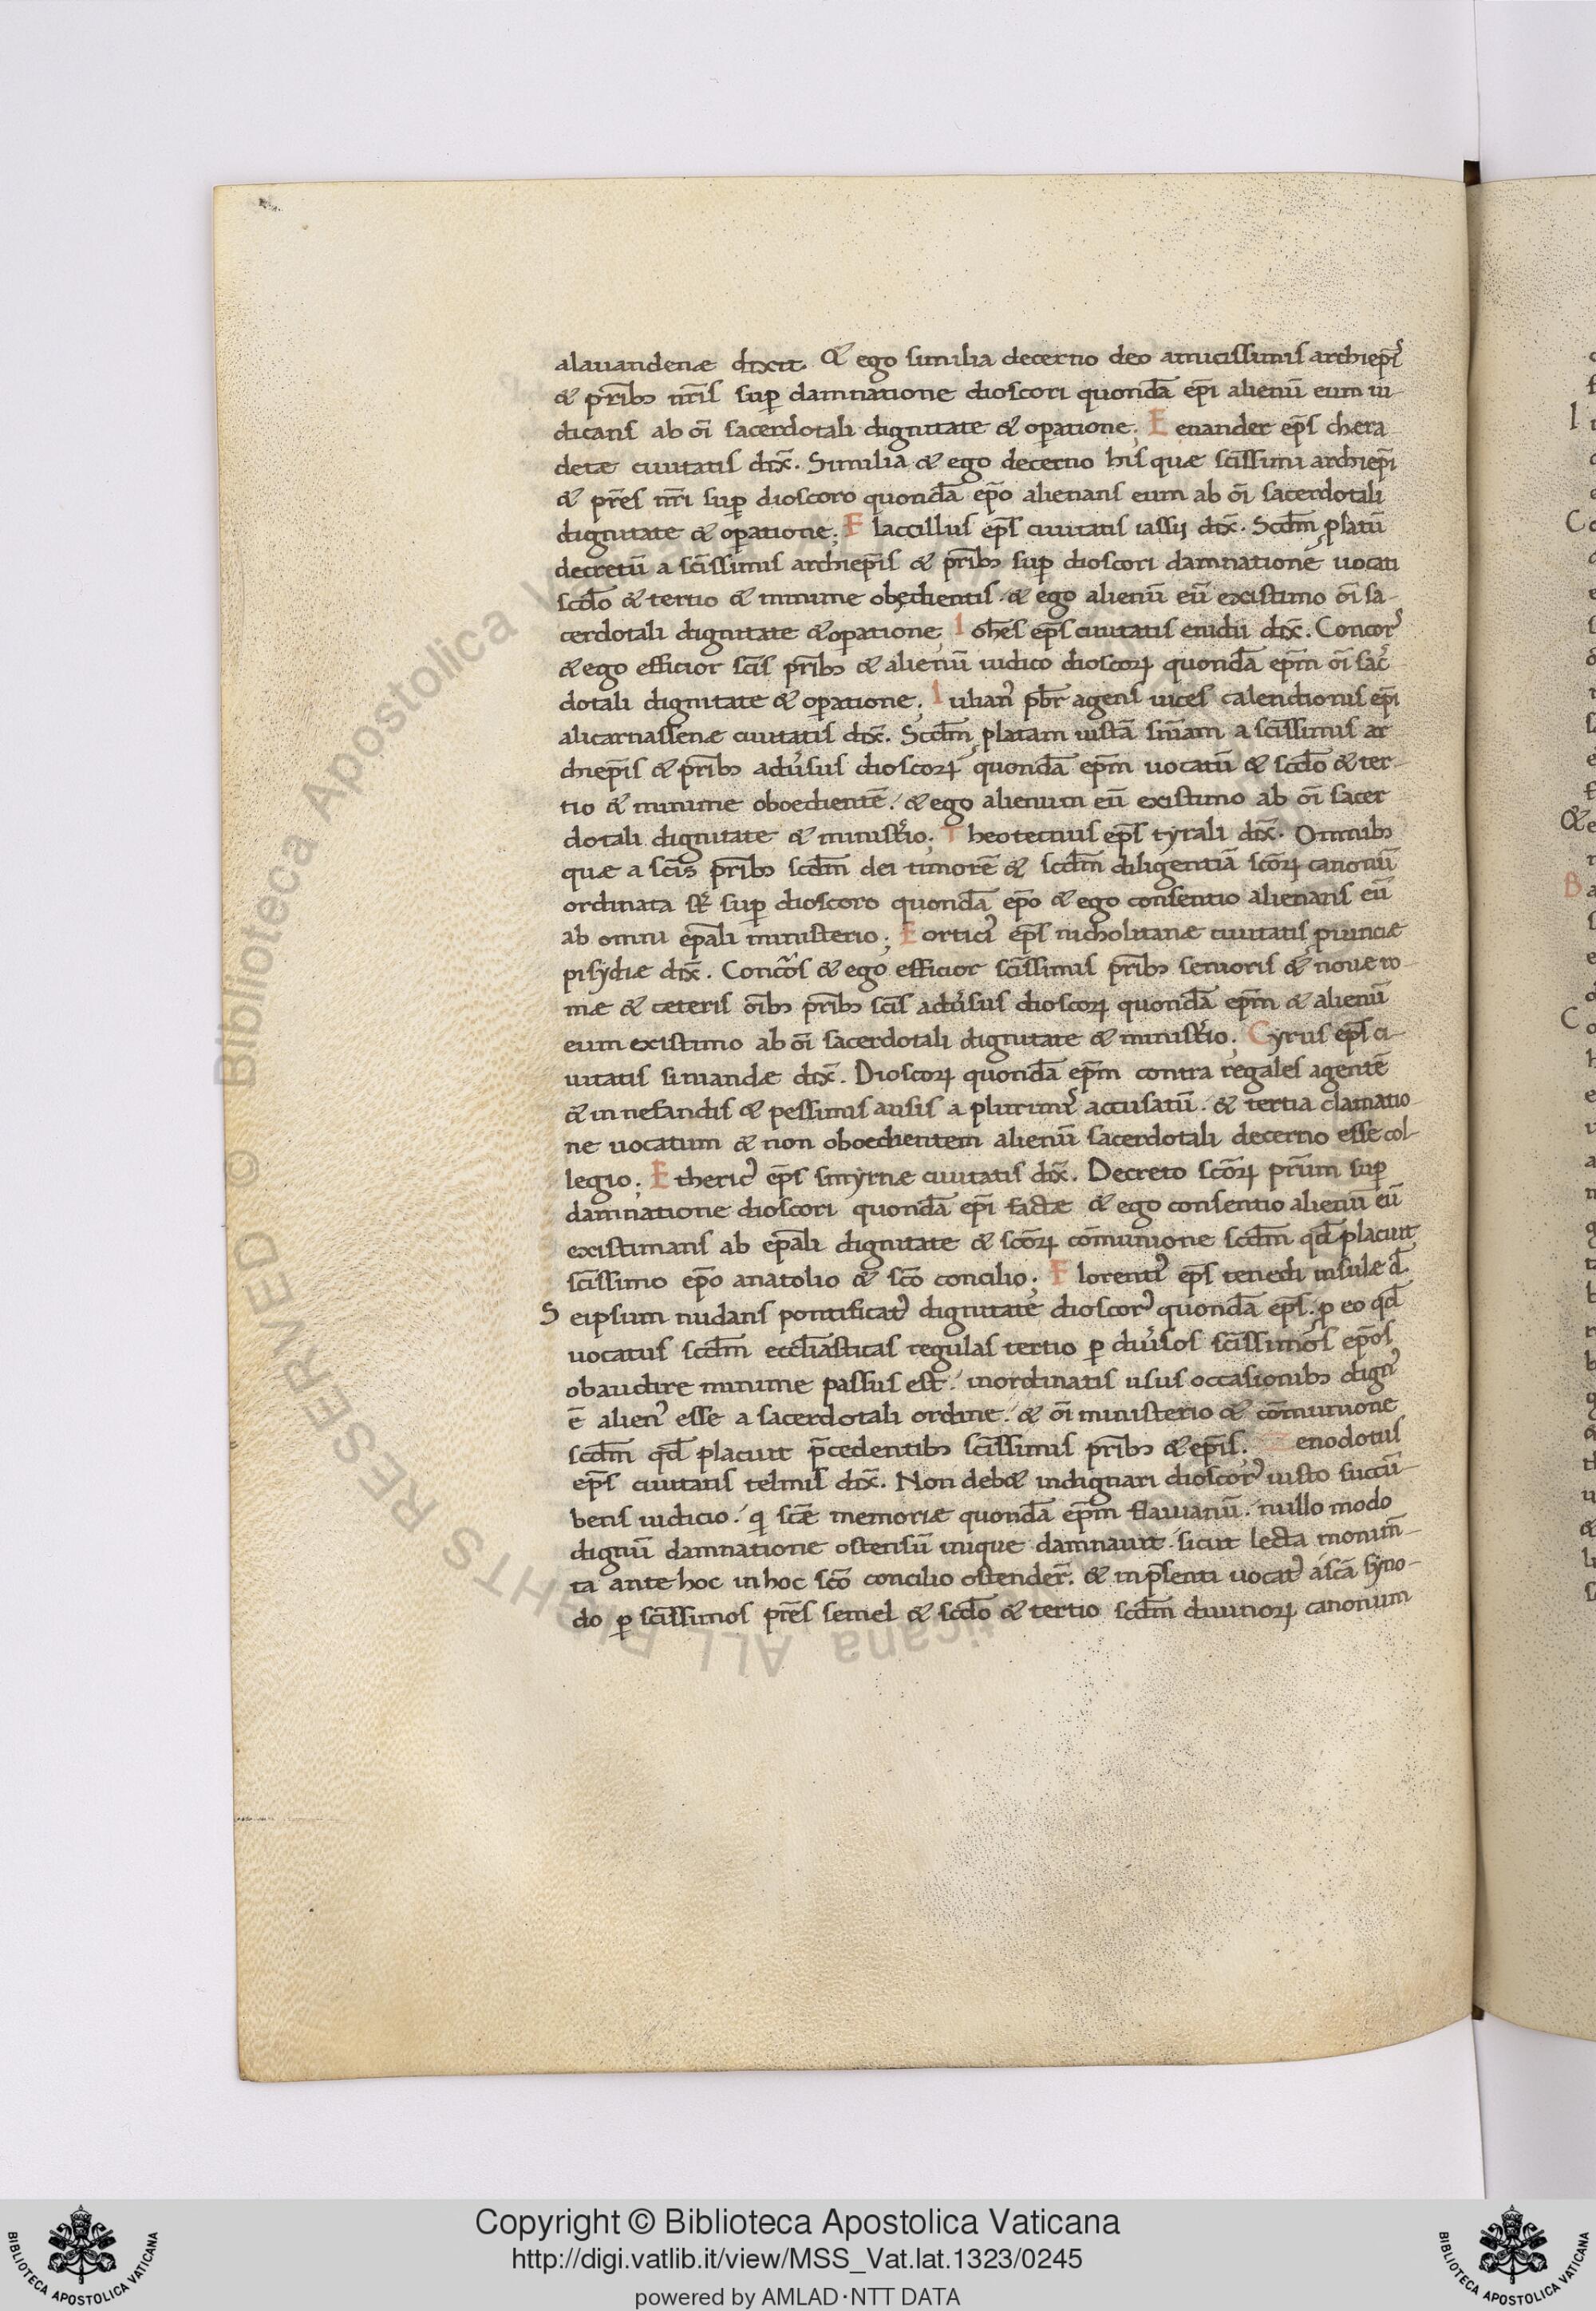 alauandenæ dixit. & ego similia decerno deo amicissimis archiep̄is
& prīb; nr̄is sup damnatione dioscori quondā ep̄i alienū eum iu-
dicans ab oī sacerdotali dignitate & opatione; Euander ep̄s chera
detæ ciuitatis dix̄. Similia & ego decerno his quæ sc̄issimi archiep̄i
& pr̄es nr̄i sup dioscoro quondā ep̄o alienans eum ab oī sacerdotali
dignitate & opatione; Flaccillus ep̄s ciuitatis iassij dix̄. Scd̄m platū
decretū a sc̄issimis archiep̄is & prīb; sup dioscori damnatione uocati
scd̄o & tertio & minime obędientis. & ego alienū eū existimo oī sa-
cerdotali dignitate & opatione; Ioh̄es ep̄s ciuitatis enidii dix̄. Concor᾽
& ego efficior sc̄is prīb; & alienū iudico dioscoꝝ quondā ep̄m oī sac̄
dotali dignitate & opatione; Iulian᾽ pb̄r agens uices calendionis ep̄i
alicarnassenæ ciuitatis dix̄. Scd̄m platam iustā sn̄iam a sc̄issimis ar
chiep̄is & prīb; adūsus dioscoꝝ quondā ep̄m uocatū & scd̄o & ter-
tio & minime oboedientē. & ego alienum eū existimo ab oī sacer
dotali dignitate & minist̄io; Theotecnus ep̄s tyrali dix̄. Omnib;
quæ a sc̄is prīb; scd̄m dei timorē & scd̄m diligentiā sc̄oꝝ canonū
ordinata sr̄ sup dioscoro quondā ep̄o & ego consentio alienans eū
ab omni ep̄ali ministerio; Eortici᾽ ep̄s nicholitanæ ciuitatis puinciæ
pisydiæ dix̄. Concōs & ego efficior sc̄issimis prīb; senioris & nouę ro-
mæ & ceteris oīb; prīb; sc̄is adūsus dioscoꝝ quondā ep̄m & alienū
eum existimo ab oī sacerdotali dignitate & minist̄io; Cyrus ep̄s ci-
uitatis simandæ dix̄. Dioscoꝝ quondā ep̄m contra regales agentē
& in nefandis & pessimis ausis a plurim᾽ accusatū. & tertia clamatio-
ne uocatum & non oboedientem alienū sacerdotali decerno esse col-
legio; Etheric᾽ ep̄s smyrnæ ciuitatis dix̄. Decreto sc̄oꝝ pr̄um sup
damnatione dioscori quondā ep̄i factæ & ego consentio alienū eū
existimans ab ep̄ali dignitate & sc̄oꝝ cōmunione scd̄m qd̄ placuit
sc̄issimo ep̄o anatolio & sc̄o concilio; Florenti᾽ ep̄s tenedi insulę d̄.
Seipsum nudans pontificat᾽ dignitate dioscor᾽ quondā ep̄s. ꝑ eo qd̄
uocatus scd̄m eccl̄iasticas regulas tertio ꝑ diūsos sc̄issimos ep̄os
obaudire minime passus est. inordinatis usus occasionib; dign᾽
ē alien᾽ esse a sacerdotali ordine. & oī ministerio & cōmunione
scd̄m qd̄ placuit p̄cedentib; sc̄issimis prīb; & ep̄is; Zenodotus
ep̄s ciuitatis telmis dix̄. Non deb& indignari dioscor᾽ iusto succū-
bens iudicio. qi sc̄æ memoriæ quondā ep̄m flauianū. nullo modo
dignū damnatione ostensū inique damnauit. sicut lecta monim̄-
ta ante hoc in hoc sc̄o concilio ostender̄. & in p̄senti uocat᾽ a sc̄ā syno-
do ꝑ sc̄issimos pr̄es semel & scd̄o & tertio scd̄m diuinoꝝ canonum
Copyright © Biblioteca Apostolica Vaticana
http://digi.vatlib.it/view/MSS_Vat.lat.1323/0245
powered by AMLAD·NTT DATA